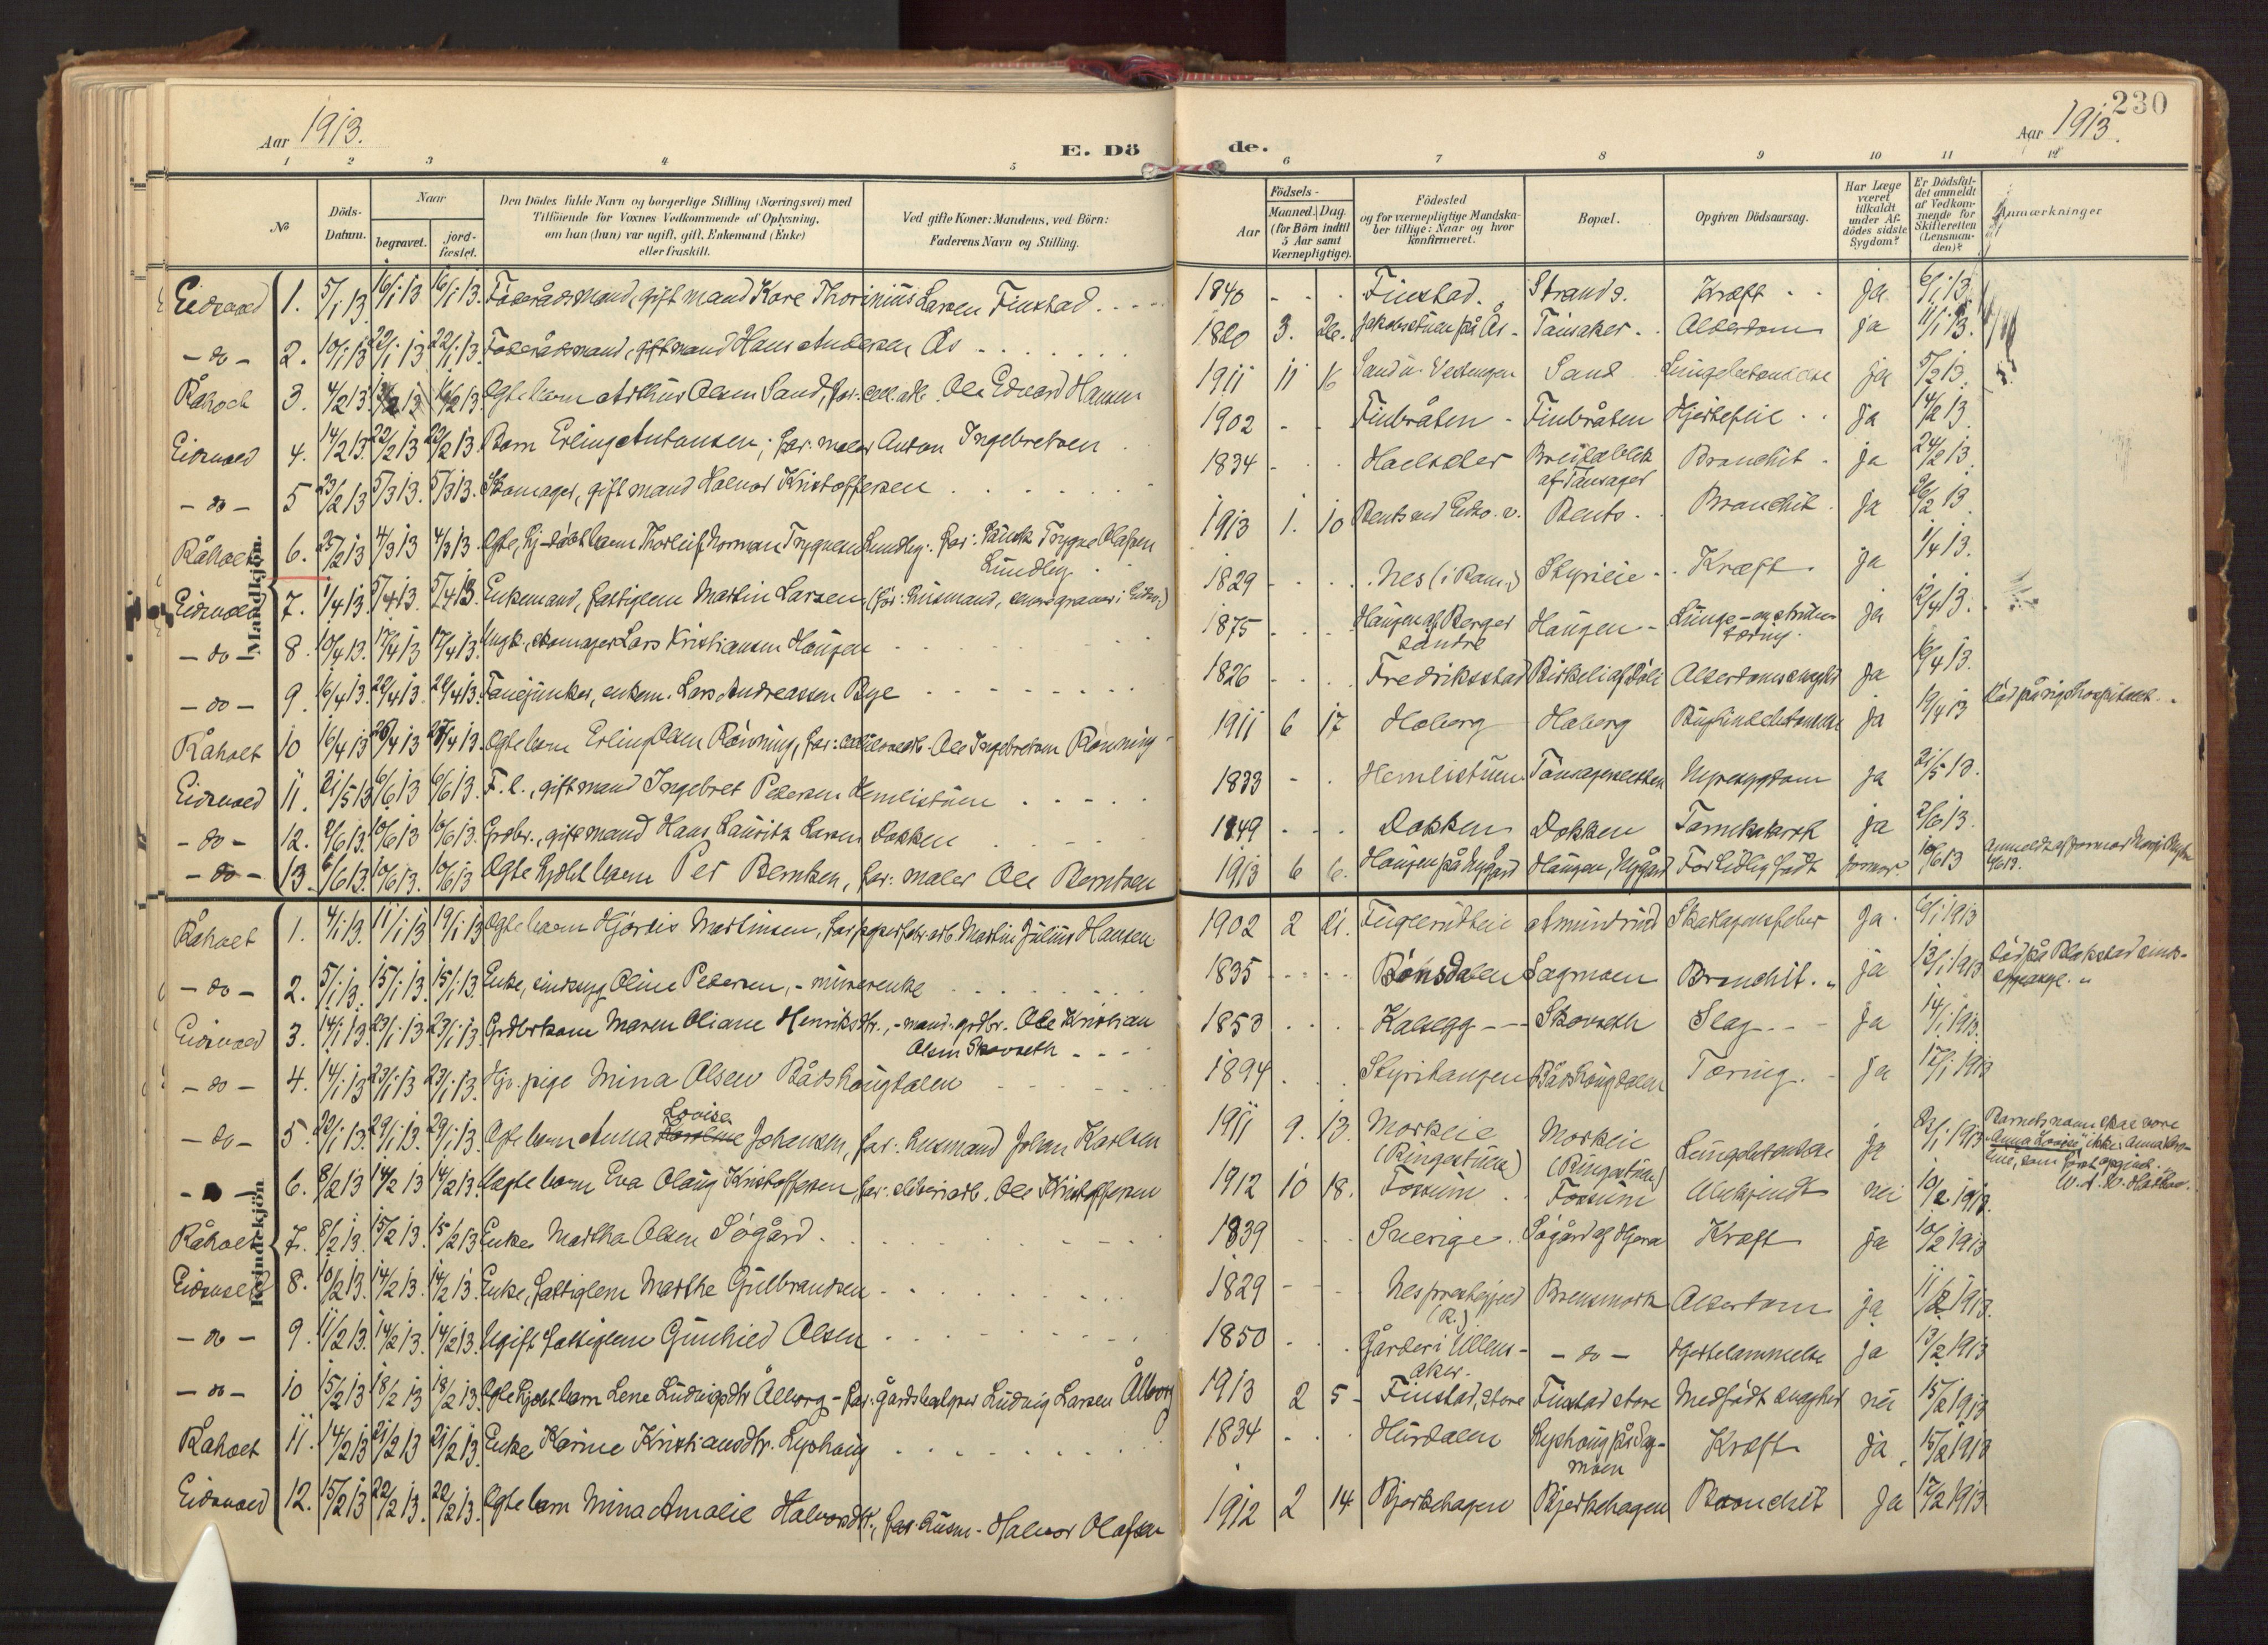 230
Aar 1913.
E. Dö
de.
Aar 1913.
1 2 3 4 5 6 7 8 9 10 11 12
№
Döds-Datum.
Naar
begravet.
jord-fæstet.
Den Dödes fulde Navn og borgerlige Stilling (Næringsvei) med
Tilföiende for Voxnes Vedkommende af Oplysning,
om han (hun) var ugift, gift, Enkemand (Enke)
eller fraskilt.
Ved gifte Koner: Mandens, ved Börn:
Faderens Navn og Stilling.
Födsels-
Aar
Maaned. Dag.
(for Börn indtil
5 Aar samt
Værnepligtige).
Födested
og for værnepligtige Mandska-
ber tillige: Naar og hvor
konfirmeret.
Bopæl.
Opgiven Dödsaarsag.
Har Læge
været
tilkaldt
under Af-
dödes sidste
Sygdom?
Er Dödsfal-
det anmeldt
af Vedkom-
mende for
Skifteretten
(Lensman-
den)?
Anmærkninger
Mandkjön.
Eidsvold 1. 5/1 13 16/1 13 16/1 13. Föderådsmand, gift mand Kare Thorinius Larsen Finstad 1840 Finstad. Strand s. Kræft ja 6/1 13.
- do - 2. 10/1 13 22/1 13 22/1 13. Föderådsmand, gift mand Hans Andersen Ås 1820 3. 26. Jakobstuen på Ås Alderdom ja 11/1 13.
Råholt 3. 4/2 13 16/2 13. Ægte barn Arthur Olsen Sand, far: Ole Edvard Hansen 1911 11 16 Sand Lungebetændelse ja 5/2 13.
Eidsvold 4. 14/2 13. 22/2 13 22/2 13. Barn Erling Antonsen; far: maler Anton Ingebretsen 1902 Finbråten Finbråten Hjertefeil ja 14/2 13.
- do - 5 23/2 13 5/3 13. 5/3 13. Skomager, gift mand Halvor Kristoffersen 1834 Bronchit ja 24/2 13.
Råholt 6. 25/2 13 4/3 13 4/3 13. Ægte, hj-döbt barn Thorleif Norman Trygvesen Lundby: far: Trygve Olafsen
Lundby 1913 1. 10 Bents. Bronchit ja 26/2 13.
Eidsvold 7. 1/4 13 5/4 13. 5/4 13. Enkemand, fattiglem Martin Larsen 1829 Nes (i Rom.) Styrieie Kræft ja 1/4 13.
- do - 8. 10/4 13. 17/4 13 17/4 13. Ungk., skomager Lars Kristiansen Haugen 1875 Haugen af Berger
söndre Haugen ja 12/4 13.
- do - 9. 16/4 13. 22/4 13. 22/4 13. enkem. Lars Andreassen Bye 1826 Fredriksstad Birkeli af Döli Alderdomssvaghed ja 16/4 13.
Råholt 10 16/4 13 26/4 13 Ægte barn Erling Olsen Rönning, far: Ole Ingebretsen Rönning 1911 6 17 Haberg Haberg ja 19/4 13 Död på rigshospitalet.
Eidsvold 11. 21/5 13 6/6 13 6/6 13. F. l., gift mand Ingebret Pedersen Hemlistuen 1833 Hemlistuen Nyresygdom ja 21/5 13.
- do - 12. 2/6 13. 10/6 13 10/6 13. Grdbr., gift mand Hans Lauritz Larsen Dokken 1849 Dokken Dokken Tarmkatarrh ja 2/6 13.
- do - 13. 6/6 13. 10/6 13. 10/6 13 Ægte hjdbt barn Per Berntsen, far: maler Ole Berntsen 1913 6 6. Haugen på Nygård Haugen, Nygård For tidlig født jormor. 10/6 13
Kvindekjön
Råholt 1. 4/1 13. 11/1 13 19/1 13 Ægte barn Hjördis Martinsen, far: Martin Julius Hansen 1902 2 21. Skarlagensfeber ja. 6/1 1913
- do - 2. 5/1 13. 15/1 13. 15/1 13. Enke, sindssyg Oline Pedersen, - murerenke 1835 Bönsdalen Sagmoen Bronchit. ja 13/1 1913 Död på Blakstad sinds-
Eidsvold 3. 14/1 13. 23/1 13 23/1 13. Grdbrkone Maren Oliane Henriksdtr., - mand: grdbr. Ole Kristian
Olsen Skovseth 1853 Kalsegg Skovseth Slag ja 14/1 1913.
- do - 4. 14/1 13. 23/1 13 23/1 13. Hjv. pige Mina Olsen Bådshaugdalen 1894 Styrihaugen Bådshaugdalen Tæring. ja 17/1 1913
- do - 5. 22/1 13. 29/1 13. 29/1 13. Ægte barn Anna Lovise Johansen, far: husmand Johan Karlsen 1911 9. 13. Morkeie
(Ringestuen) Morkeie
(Ringestuen) Lungebetændelse ja 22/1 1913 Barnets navn skal være
Anna Lovise, ikke Anna Karo-
line, som först opgivet.
- do - 6. 8/2 13 14/2 13 14/2 13. Uægte barn Eva Olaug Kristoffersen, far: Ole Kristoffersen 1912 10 18. Fossum Fossum nei 10/2 1913.
Råholt 7. 8/2 13. 15/2 13. 15/2 13 Enke Martha Olsen Sögård 1839 Sverige Sögård Kræft ja 10/2 1913
Eidsvold 8. 10/2 13. 14/2 13. 14/2 13. Enke, fattiglem Marthe Gulbrandsen 1829 Nes prestegjeld
(R.) Brensmork Alderdom ja 11/2 1913.
- do - 9. 11/2 13. 14/2 13. 14/2 13. Ugift fattiglem Gunhild Olsen 1850 Gårder i Ullens-
aker. - do - Hjertelammelse ja 13/2 1913
- do - 10 15/2 13 18/2 13 18/2 13. Ægte hjdbt barn Lene Ludvigsdtr Ålborg - far: gårdsbestyrer Ludvig Larsen Ålborg 1913 2 5 Finstad, store Finstad store Medfødt svaghed nei 15/2 1913
Råholt 11. 14/2 13 21/2 13 21/2 13. Enke Karine Kristiansdtr. Lyshaug 1834 Hurdalen Lyshaug på Sag-
moen Kræft ja 15/2 1913
Eidsvold 12. 15/2 13 22/2 13. 22/2 13. Ægte barn Mina Amalie Halvorsdtr., far: husm. Halvor Olafsen 1912 2 14 Bjerkehagen Bjerkehagen Bronchit ja 17/2 1913